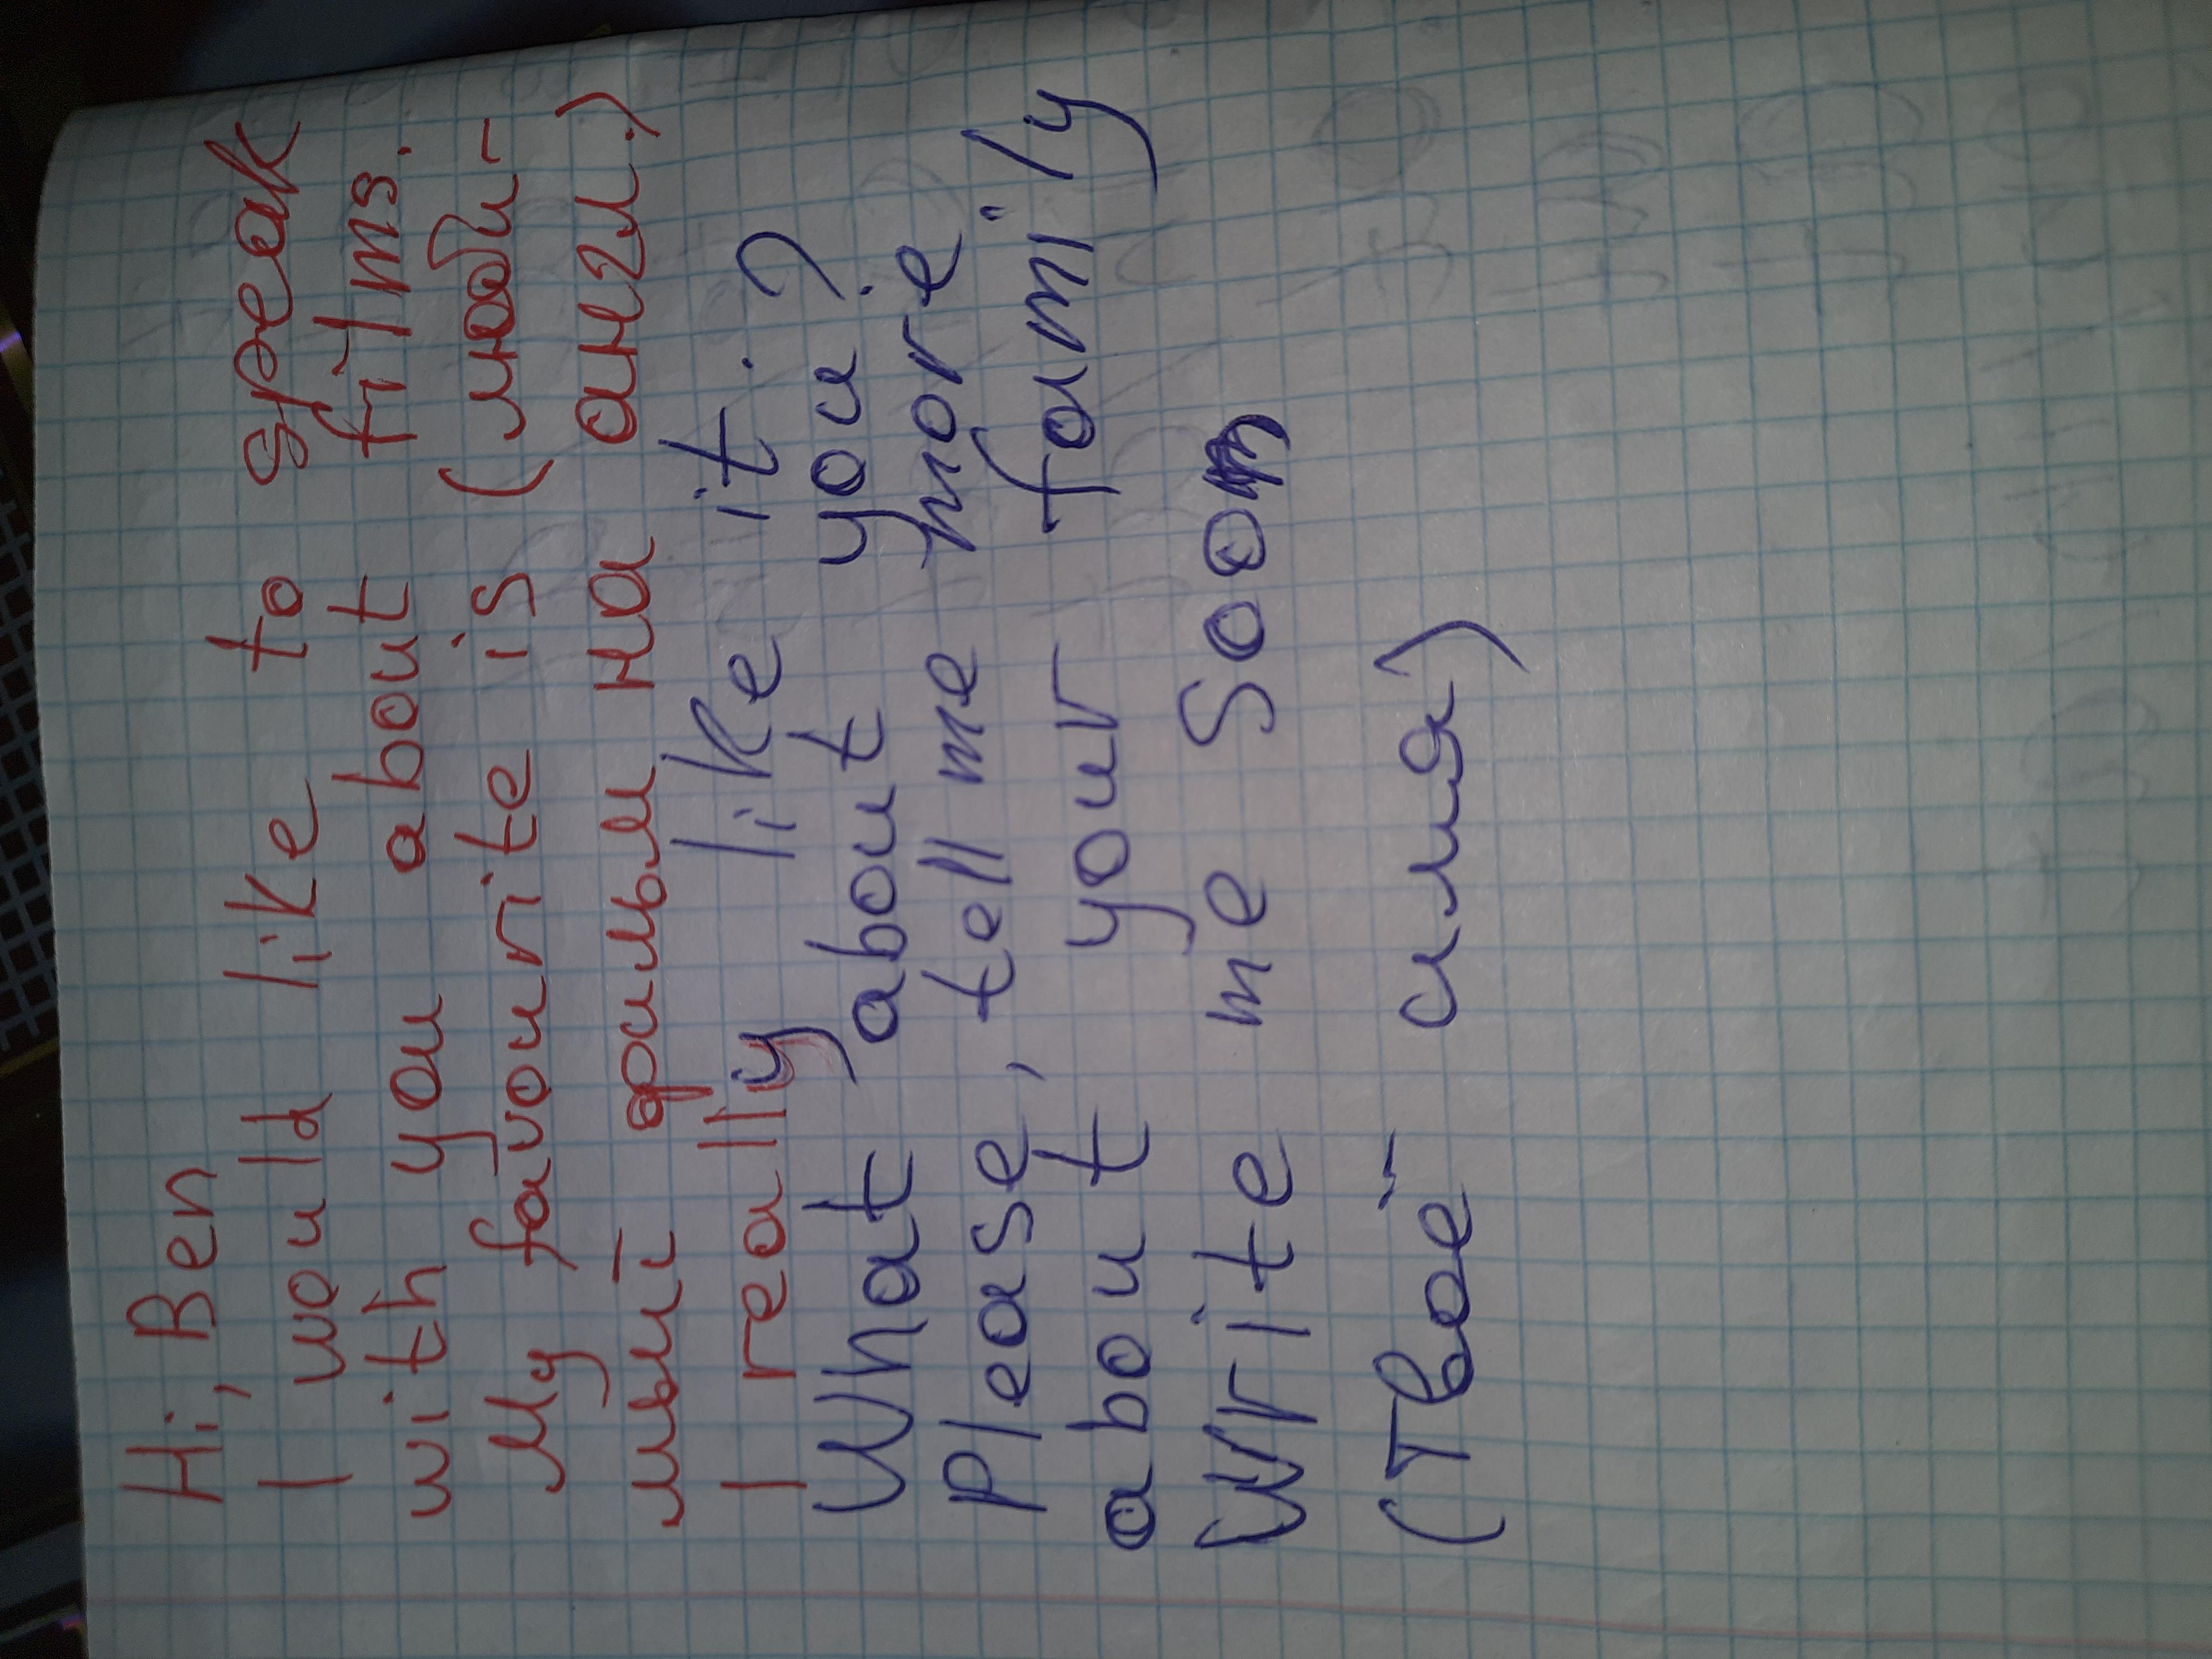 Hi, Ben
I would like to speak
with you about films.
My favourite is (люби-
мый фильм на англ.)
I really like it.
What about you?
Please, tell me more
about your family
Write me soon
(Твоё имя)